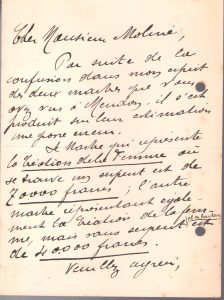 Cher Monsieur Moliné,
Par suite de la
confusion dans mon esprit
des deux marbres que vous
avez vus à Meudon, il s'est
produit sur leur estimation
une grosse erreur.
Le Marbre qui représente
la Création de la Femme où
se trouve un serpent est de
70000 francs; l'autre
marbre représentant égale
ment la Création de la fem
me, mais sans serpent est
de 40000 francs.
Veuillez agréer,